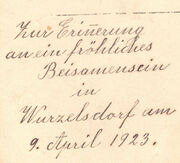 Zur Erin̅erung
an ein fröhliches
Beisamensein
in
Wurzelsdorf am
9. April 1923.